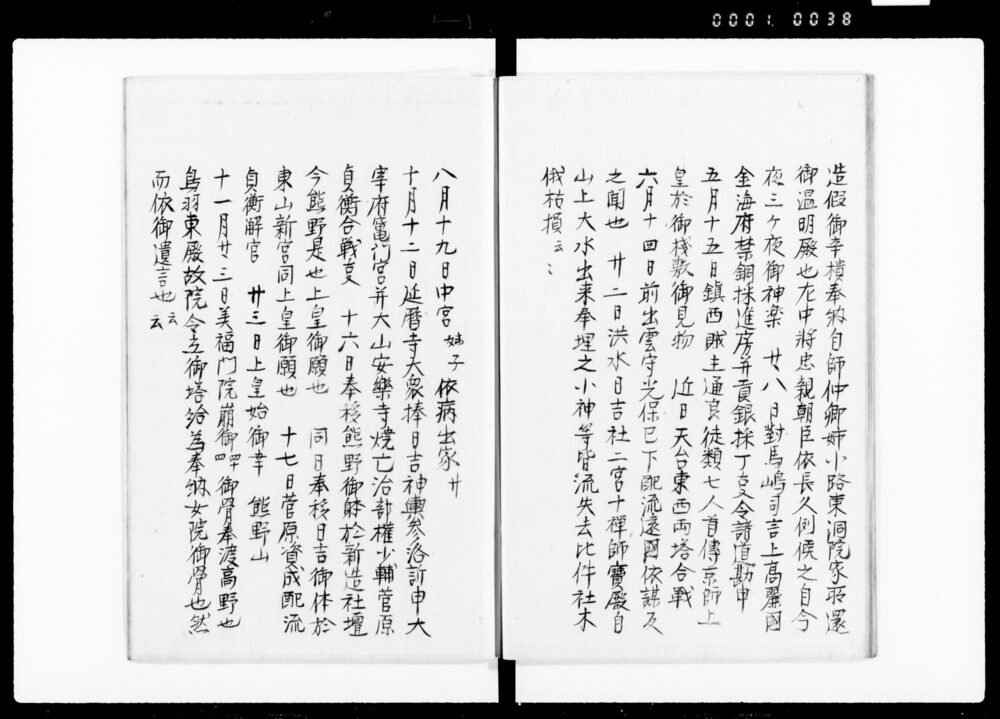 0001 0038
造假御辛樻奉納自師仲卿姉小路東洞院家所還
御温明殿也左中將忠親朝臣依長久例候之自今
夜三ケ夜御神楽　廿八日對馬嶋司言上高麗國
金海府禁錮採進房并貢銀採丁㕝令諸道勘申
五月十五日鎮西賊主通良徒類七人首傳京師上
皇於御棧敷御見物　近日天台東西両塔合戦
六月十四日前出雲守光保已下配流遠國依謀反
之聞也　廿二日洪水日吉社二宮十禅師寶殿自
山上大水出来奉埋之小神等皆流失去比件社木
俄枯損云々
八月十九日中宮姝子依病出家廿
十月十二日延暦寺大衆捧日吉神輿参洛訴申大
宰府竈門宮并大山安樂寺燒亡治部權少輔菅原
貞衡合戦㕝　十六日奉移熊野御躰於新造社壇
今熊野是也上皇御願也　同日奉移日吉御体於
東山新宮同上皇御願也　十七日菅原資成配流
貞衡解官　廿三日上皇始御幸　熊野山
十一月廿三日美福門院崩御四十四御骨奉渡高野也
鳥羽東殿故院令立御塔給為奉納女院御骨也然
而依御遺言也云云